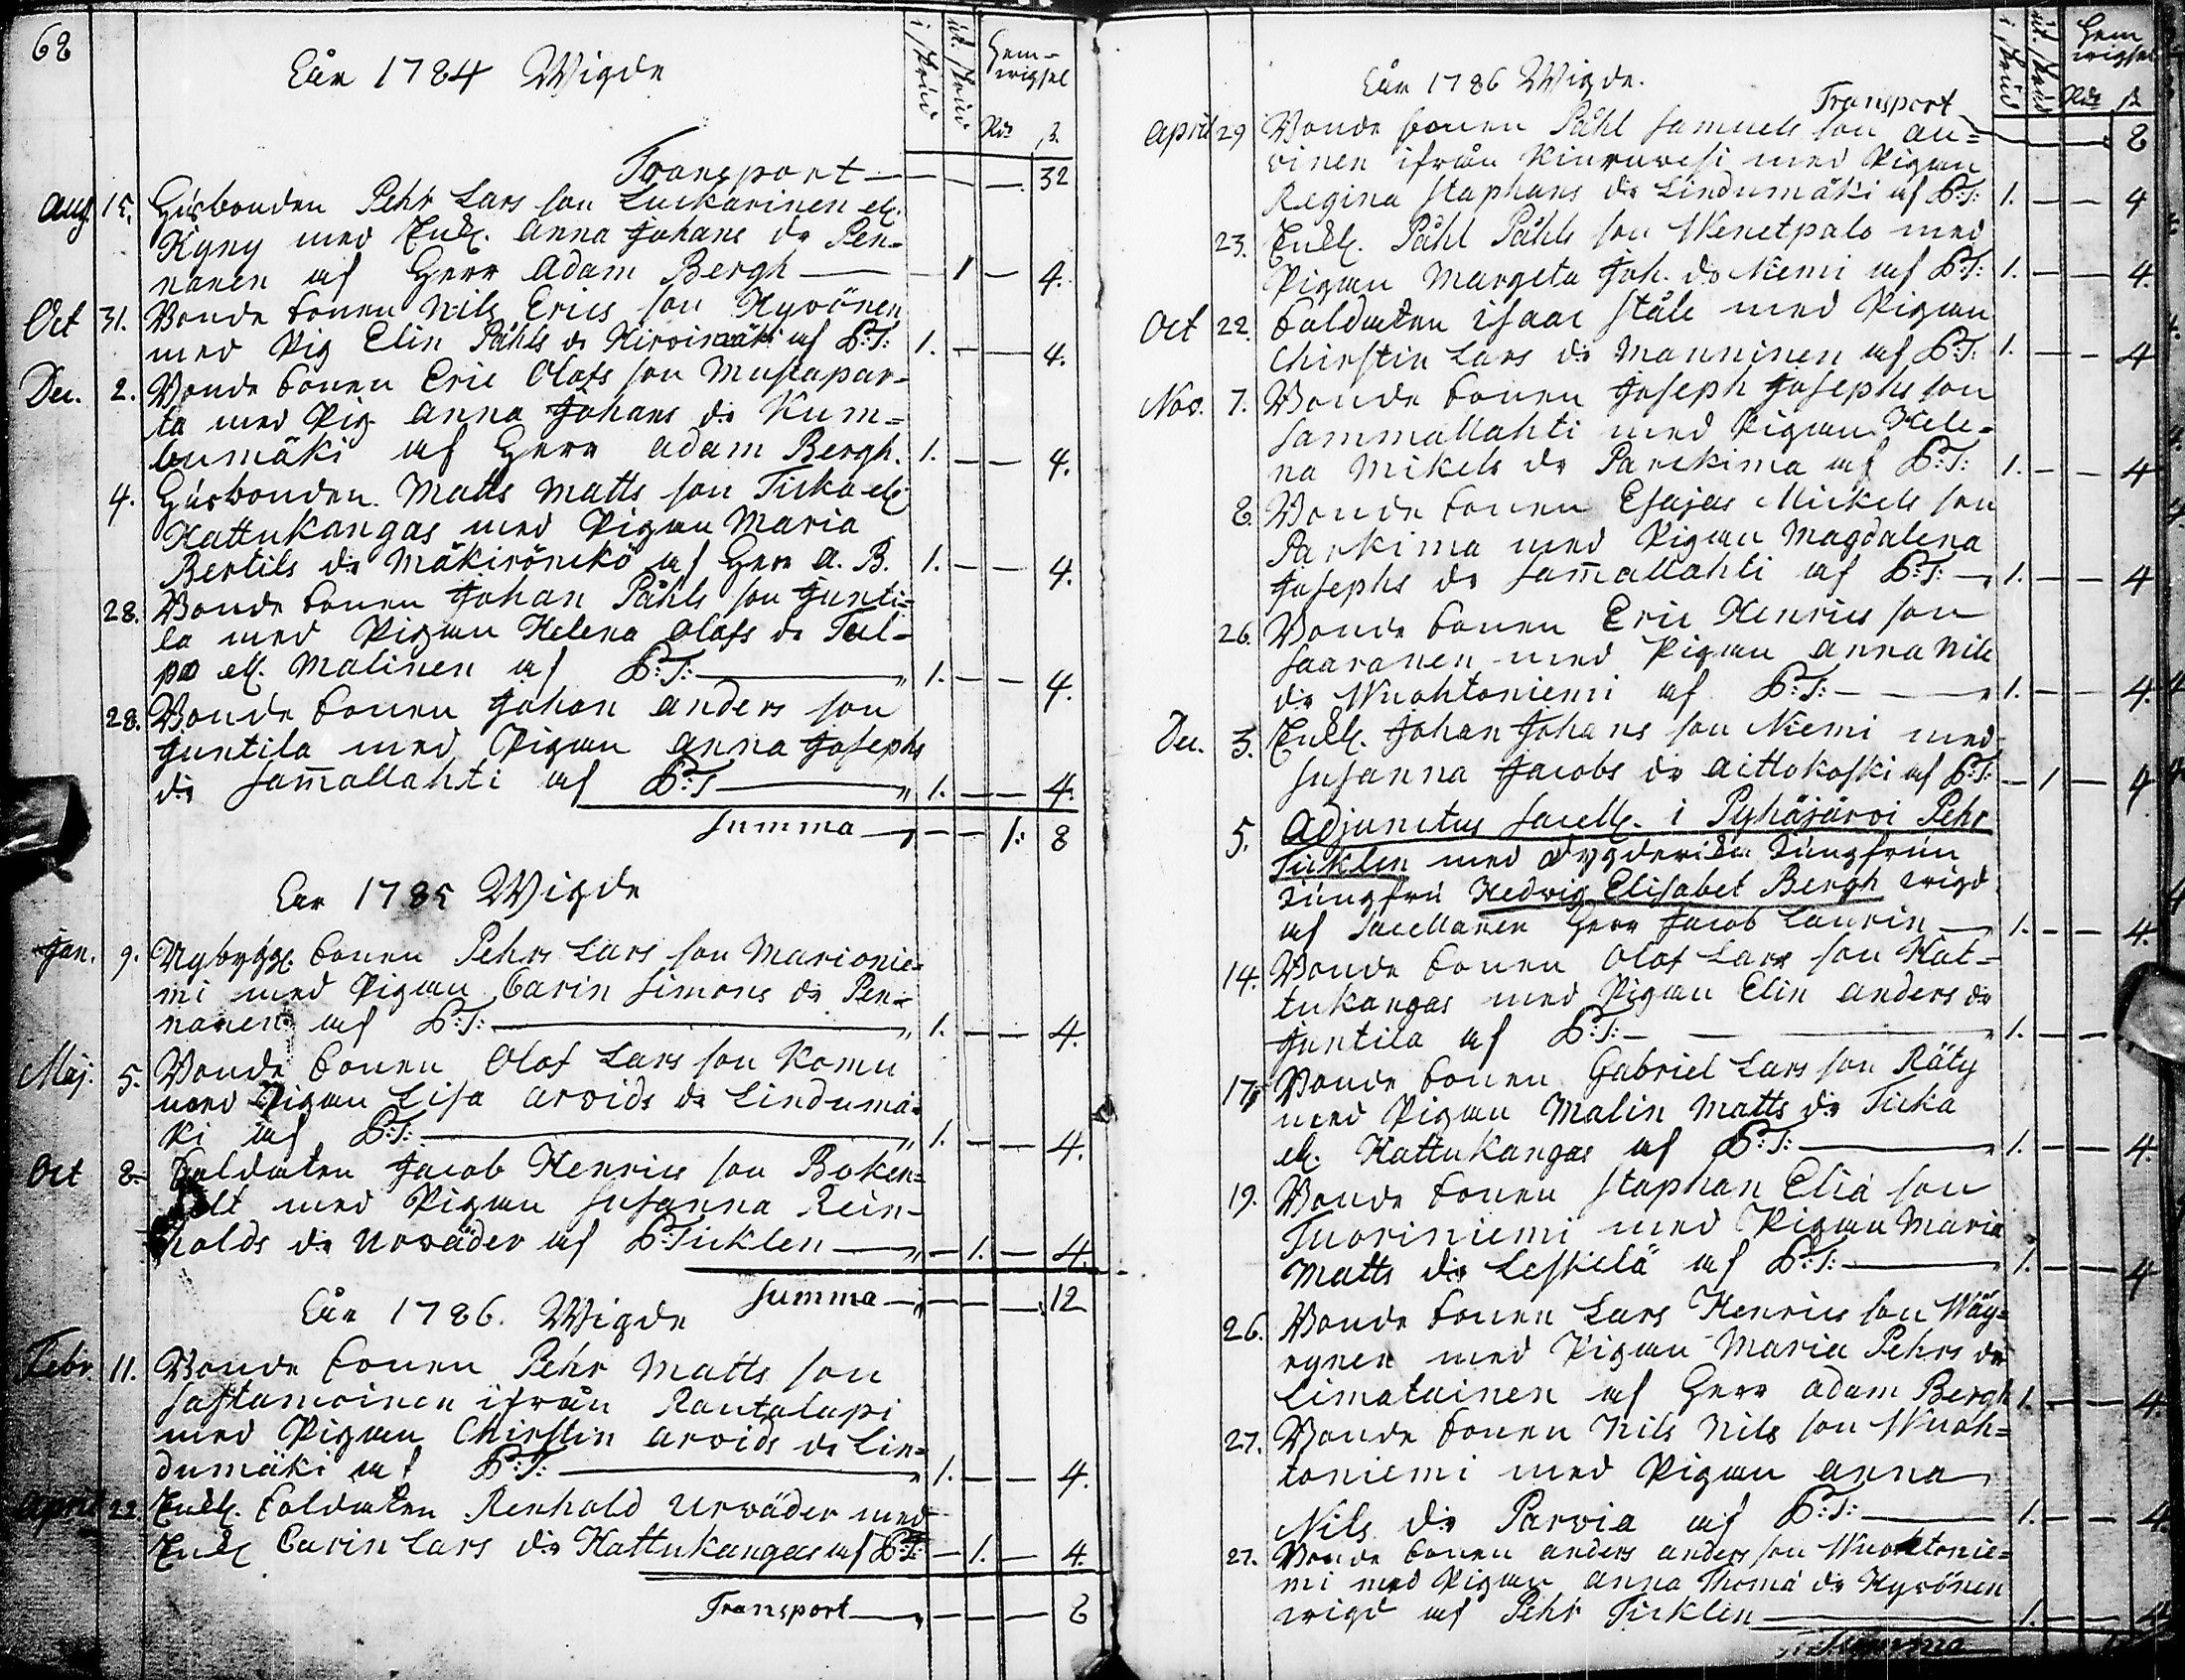 68
i / krud
ut. / krud
Hem-
wigsel
Rd: ß.
Åår 1784 Wigde
Transport — 32
Aug. 15. Husbonden Pehr Lars son Luckarinen ell.
Kyny med Enkl. Anna Johans dr Pen-
nanen af Herr Adam Bergh — 1 — 4.
Oct 31. Bonde sonen Nils Erics son Hyvönen
med Pig Elin Påhls dr Hirvimäki af P:T: 1. — — 4.
Dec. 2. Bonde sonen Eric Olofs son Mustapar-
ta med Pig. Anna Johans dr Kum=
bumäki af Herr Adam Bergh. 1. — — 4.
4. Husbonden Matts Matts son Ticka ell.
Kattukangas med Pigan Maria
Bertils dr Mäkirönckö af Herr A. B. 1. — — 4.
28. Bonde sonen Johan Påhls son Junti=
la med Pigan Helena Olofs dr Tul-
po ell. Malinen af P:T: — 1. — — 4.
28. Bonde sonen Johan Anders son
Juntila med Pigan Anna Josephs
dr Sam̄allahti af P:T — 1. — — 4.
Summa — — — 1: 8
Åår 1785 Wigde
Jan. 9. Nybygg. sonen Pehrs Lars son Marionie=
mi med Pigan Carin Simons dr Pen=
nanen af P:T: — 1. — — 4.
Maj. 5. Bonde sonen Olof Lars son Komu
med Pigan Lisa Arvids dr Lindumä=
ki af P:T: — 1. — — 4.
Oct 8. Soldaten Jacob Henrics son Boken=
hult med Pigan Susanna Rein-
holds dr Urväder af P:Ticklen — — 1. — 4.
Summa — — — 12
Åår 1786. Wigde
Febr. 11. Bonde sonen Pehr Matts son
Sastamoinen ifrån Rautalapi
med Pigan Chirstin Arvids dr Lin=
dumäki af P:T: — 1. — — 4.
April 22. Enkl. Soldaten Renhold Urväder med
Enk. Carin Lars dr Kattukangas af P:T: — 1. — 4.
Transport — — — 8
i / krud
ut. / krud
Hem
wigsel
Rd: ß
Åår 1786 Wigde.
Transport 8
April 29 Bonde sonen Påhl Samuels son Au=
vinen ifrån Kiuruvesi med Pigan
Regina Staphans dr Lindumäki af P:T: 1. — — 4
23. Enkl. Påhl Påhls son Wenetpalo med
Pigan Margeta Joh. dr Niemi af P:T: 1. — — 4.
Oct 22. Soldaten Isaac Ståle med Pigan
Chirstin Lars dr Manninen af P:T: 1. — — 4
Nov. 7. Bonde sonen Joseph Josephs son
Sammallahti med Pigan Hele-
na Mikels dr Parckima af P:T: 1. — — 4
8. Bonde sonen Esajas Mickels son
Parkima med Pigan Magdalena
Josephs dr Sam̄allahti af P:T: — 1. — — 4
26. Bonde sonen Eric Henrics son
Saaranen med Pigan Anna Nils
dr Wuohtoniemi af P:T: — 1. — — 4.
Dec. 3. Enkl. Johan Johans son Niemi med
Susanna Jacobs dr Aittokoski af P:T: — 1 — 4
5. Adjunctus Sacell. i Pyhäjärvi Pehr
Ticklen med Dygderika Jungfrun
Jungfru Hedvig Elisabet Bergh wigd
af Sacellanen Herr Jacob Laurin — 1. — — 4.
14. Bonde sonen Olof Lars son Kat-
tukangas med Pigan Elin Anders dr
Juntila af P:T: — 1. — —
17. Bonde sonen Gabriel Lars son Räty
med Pigan Malin Matts dr Ticka
ell. Kattukangas af P:T: — 1. — — 4.
19. Bonde sonen Staphan Eliä son
Tuoriniemi med Pigan Maria
Matts dr Leskelä af P:T: — 1. — — 4
26. Bonde sonen Lars Henrics son Wäy=
rynen med Pigan Maria Pehrs dr
Limatainen af Herr Adam Bergh 1. — — 4.
27. Bonde sonen Nils Nils son Wuoh=
toniemi med Pigan Anna
Nils dr Parvia af P:T: — 1. — — 4.
27. Bonde sonen Anders Anders son Wuohtonie=
mi med Pigan Anna Thomä dr Hyvönen
wigd af Pehr Ticklen — 1. — — 4
Summa